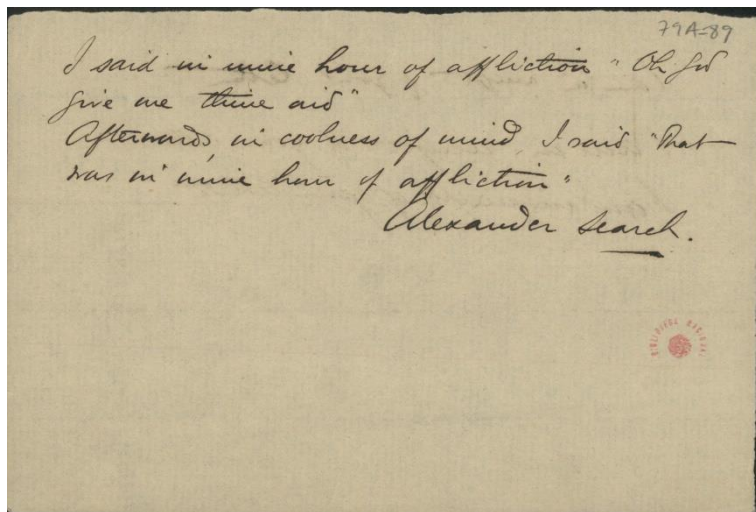 79A-89
I said in mine hour of affliction "Oh God
give me thine aid"
Afterwards, in coolness of mind I said "That
was in mine hour of affliction"
Alexander Search.
BIBLIOTECA NACIONAL